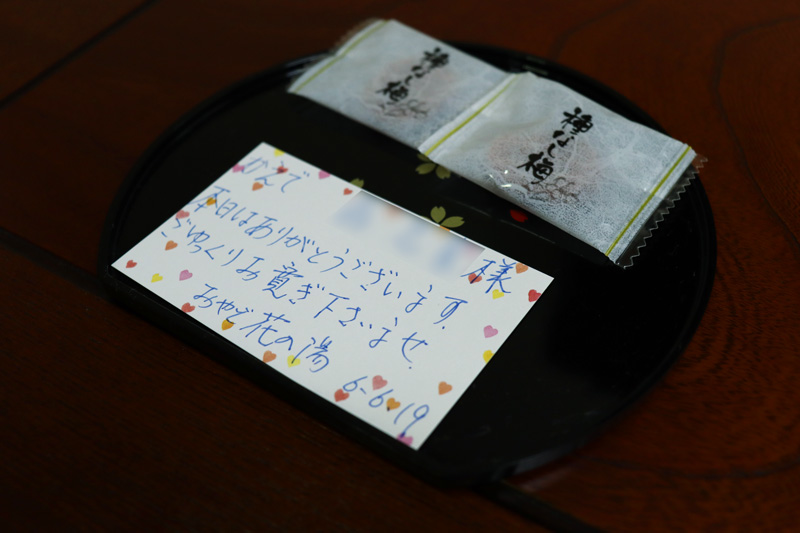 種なし梅
種なし梅
かえで
様
本日はありがとうございます.
ごゆっくりお寛ぎ下さいませ.
おやど花の湯
6-6.19